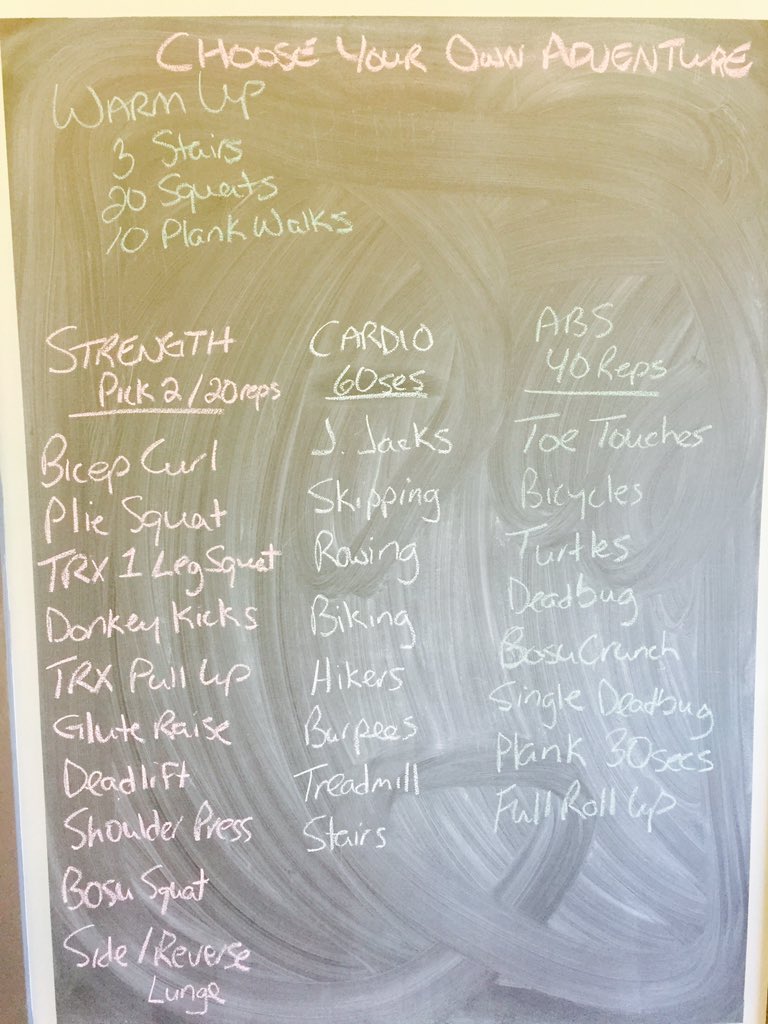 CHOOSE YOUR OWN ADVENTURE
WARM UP
3 Stairs
20 Squats
10 Plank Walks
STRENGTH
Pick 2/20 reps
Bicep Curl
Plie Squat
TRX 1 Leg Squat
Donkey Kicks
TRX Pull Up
Glute Raise
Deadlift
Shoulder Press
Bosu Squat
Side/Reverse
Lunge
CARDIO
60 secs
J. Jacks
Skipping
Rowing
Biking
Hikers
Burpees
Treadmill
Stairs
ABS
40 Reps
Toe Touches
Bicycles
Turtles
Deadbug
Bosu Crunch
Single Deadbug
Plank 30secs
Full Roll Up